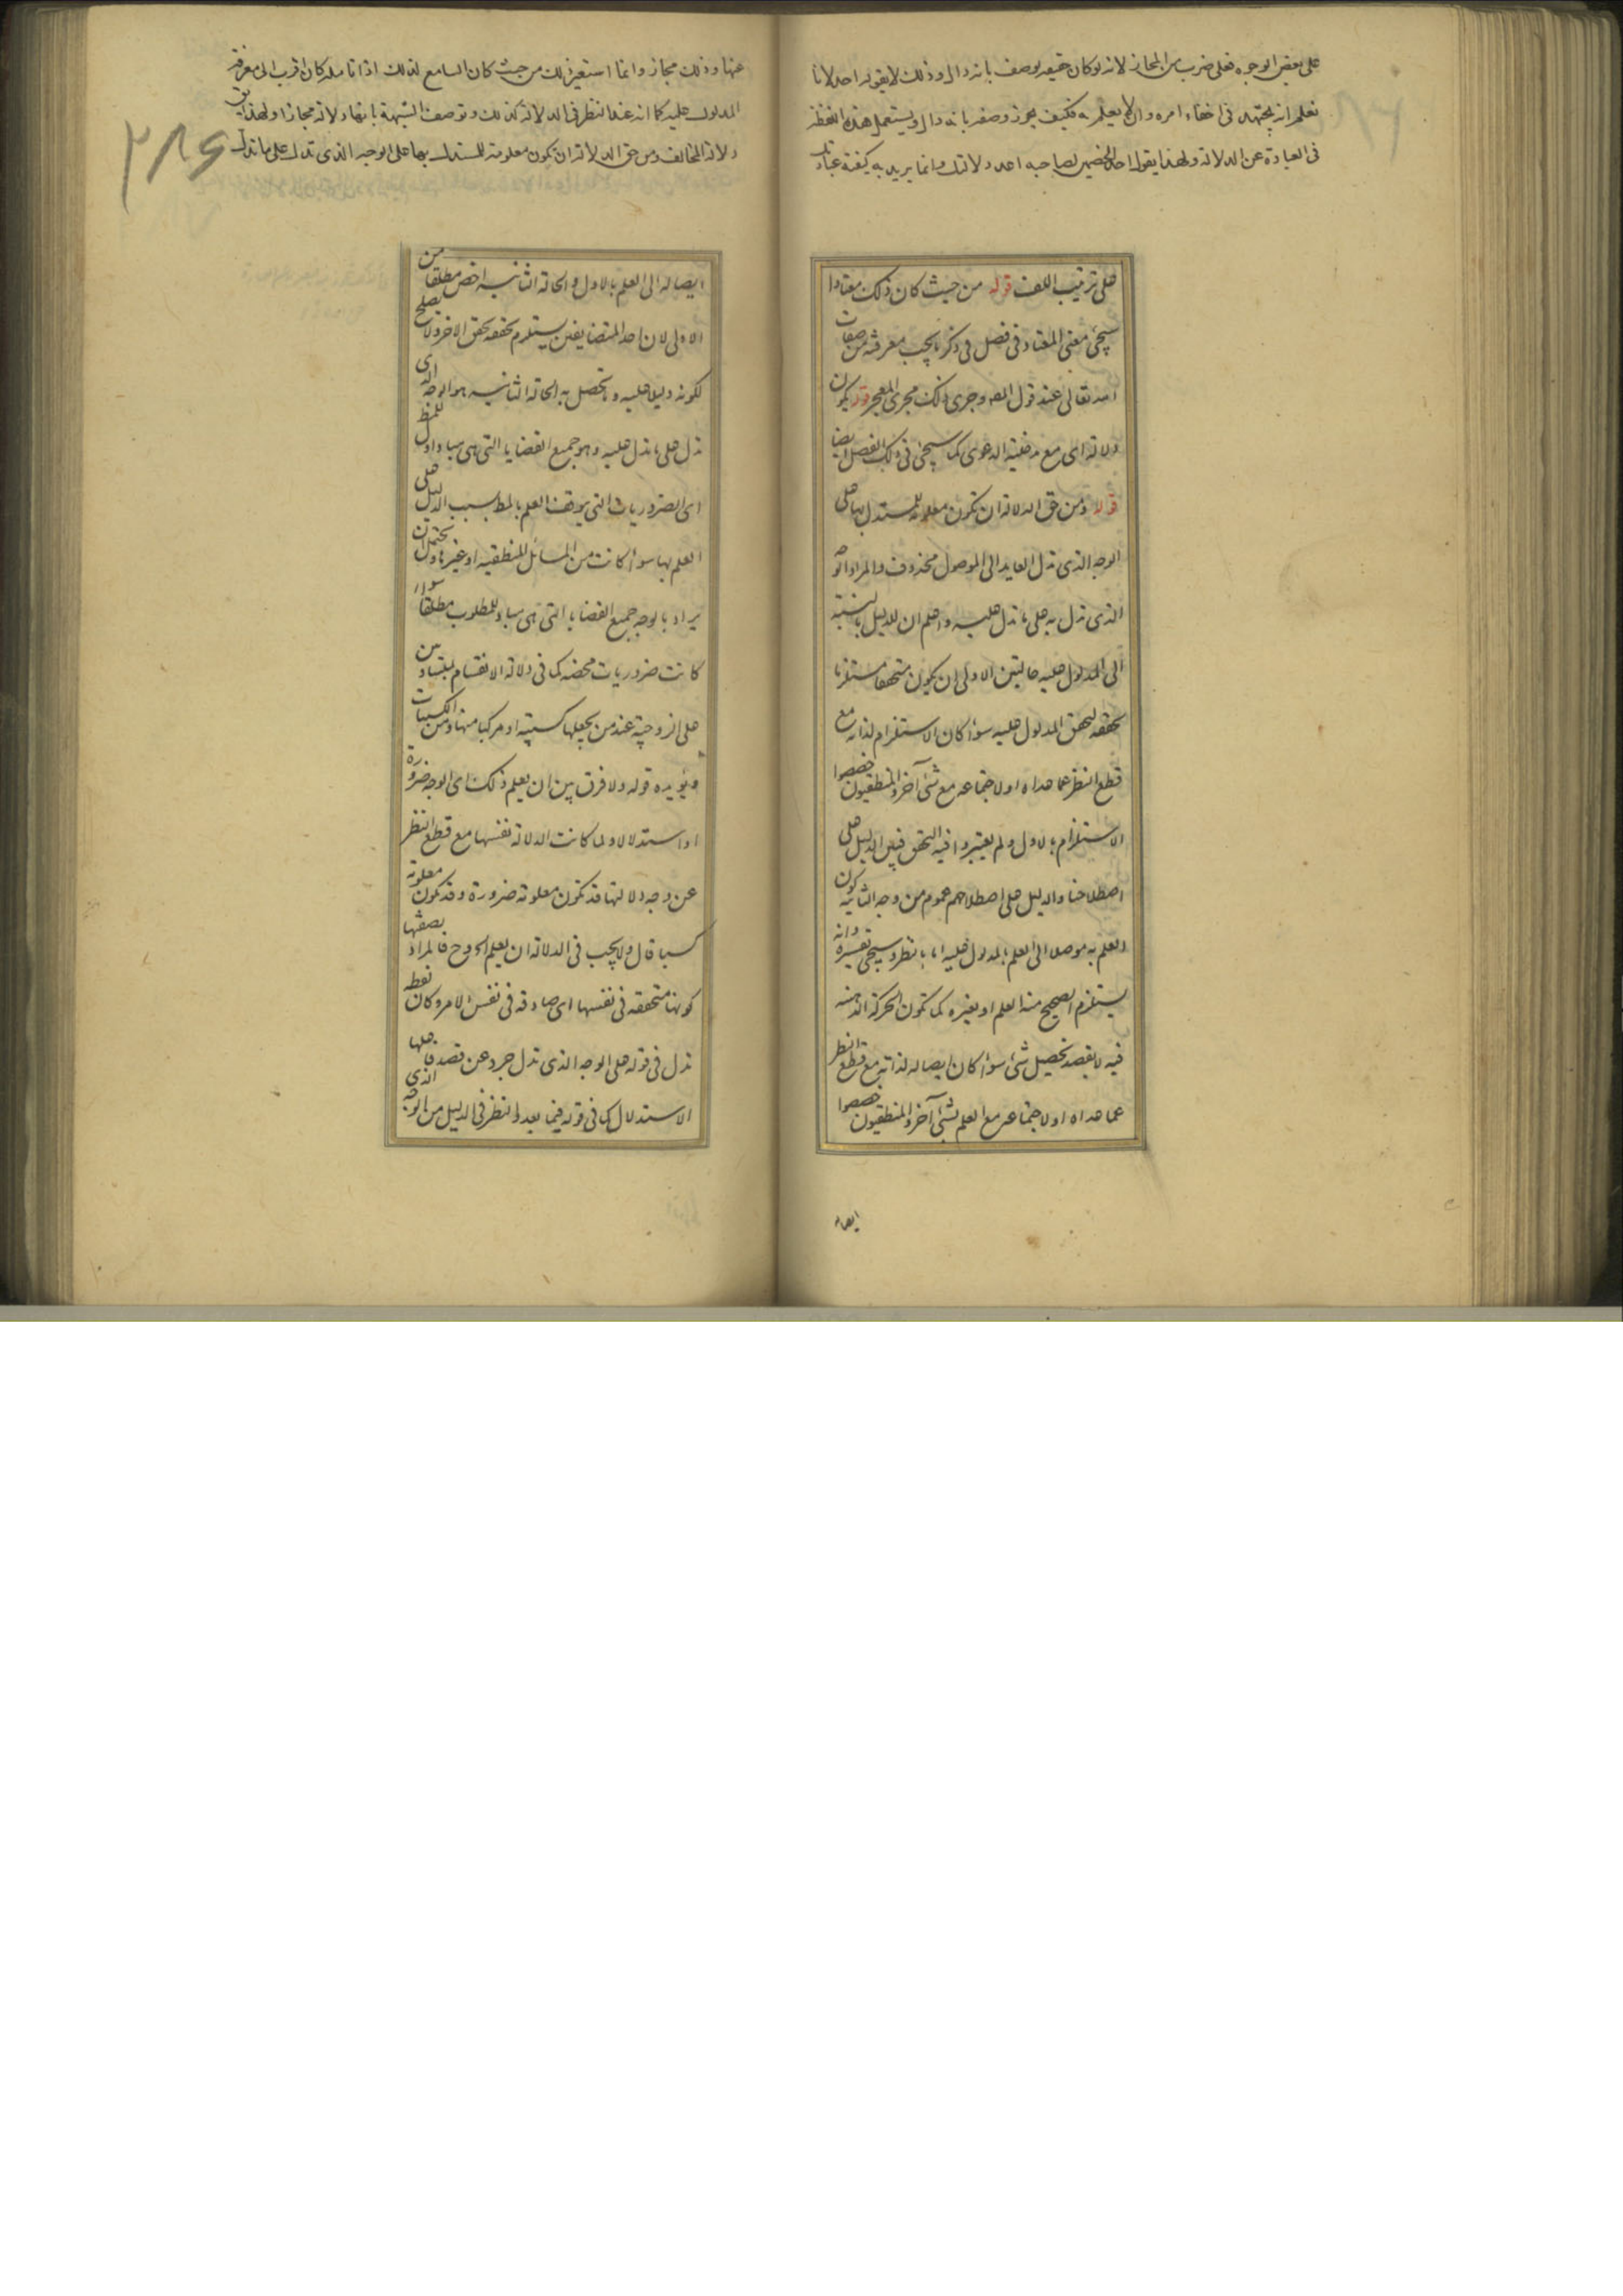 على بعض الوجوه فعلى ضرب من المجاز لانه لو كان حقيقة يوصف بانه دال وذلك لا يقوله احد لانا
نعلم انه يجتهد فى اخفاء امره وان لا يعلم به فكيف يجوز وصفه بانه دال ويستعمل هذه اللفظة
فى العبادة عن الدلالة ولهذا يقول احد الخصمين لصاحبه اعد دلالتك وانما يريد به كيفية عبارتك
على ترتيب اللف قوله من حيث كان ذلك معتادا
سيجئ معنى المعتاد فى فصل فى ذكر ما يجب معرفته من صفات
الله تعالى عند قول المصه وجرى ذلك مجرى المعجز قوله يكون
دلالة اى مع مدخلية الدعوى كما سيجئ فى ذلك الفصل ايضا
قوله ومن حق الدلالة ان تكون معلومة للمستدل بها على
الوجه الذى تدل العايد الى الموصول محذوف والمراد الوجه
الذى تدل به على ما تدل عليه واعلم ان للدليل بالنسبة
الى المدلول عليه حالتين الاولى ان يكون متحققا مستلزما
تحققه لتحقق المدلول عليه سواء كان الاستلزام لذاته مع
قطع النظر عما عداه او لاجتماعه مع شئ آخر والمنطقيون خصصوا
الاستلزام بالاول ولم يعتبروا فيه التحقق فبين الدليل على
اصطلاحنا والدليل على اصطلاحهم عموم من وجه الثانية كون
العلم به موصلا الى العلم بالمدلول عليه اما بالنظر وسيجئ تفسيره وانه
يستلزم الصحيح منه العلم او بغيره كما تكون الحركة الذهنية
فيه لا بقصد تحصيل شئ سواء كان ايصاله لذاته مع قطع النظر
عما عداه او لاجتماعه مع العلم بشئ آخر والمنطقيون خصصوا
ايصاله
عنها وذلك مجاز وانما استعير ذلك من حيث كان السامع لذلك اذا تامله كان اقرب الى معرفة
المدلول عليه كما انه عند النظر فى الدلالة كذلك وتوصف الشبهة بانها دلالة مجازا ولهذا يق
دلالة المخالف ومن حق الدلالة ان تكون معلومة للمستدل بها على الوجه الذى تدل على ما تدل
٢٨٤
ايصاله الى العلم بالاول والحالة الثانية اخص مطلقا من
الاولى لان احد المتضايفين يستلزم تحققه تحقق الاخر ولا يصلح
لكونه دليلا عليه وما تحصل به الحالة الثانية هو الوجه الذى
تدل على ما تدل عليه وهو جميع القضايا التى هى مباد اول للمط
اى الضروريات التى يتوقف العلم بالمط بسبب الدليل على
العلم بها سواء كانت من المسائل المنطقية او غيرها ويحتمل ان
يراد بالوجه جميع القضايا التى هى مباد للمطلوب مطلقا سواء
كانت ضروريات محضة كما فى دلالة الانقسام بمتساويين
على الزوجية عند من يجعلها كسبية او مركبا منها ومن الكسبيات
ويؤيده قوله ولا فرق بين ان يعلم ذلك اى الوجه ضرورة
او استدلالا ولما كانت الدلالة نفسها مع قطع النظر
عن وجه دلالتها قد تكون معلومة ضرورة وقد تكون معلومة
كسبا قال ولا يجب فى الدلالة ان يعلم الخ وح فالمراد بصفتها
كونها متحققة فى نفسها اى صادقة فى نفس الامر وكان لفظه
تدل فى قوله على الوجه الذى تدل جرد عن قصد فاعلها
الاستدلال كما فى قوله فيما بعد والنظر فى الدليل من الوجه الذى